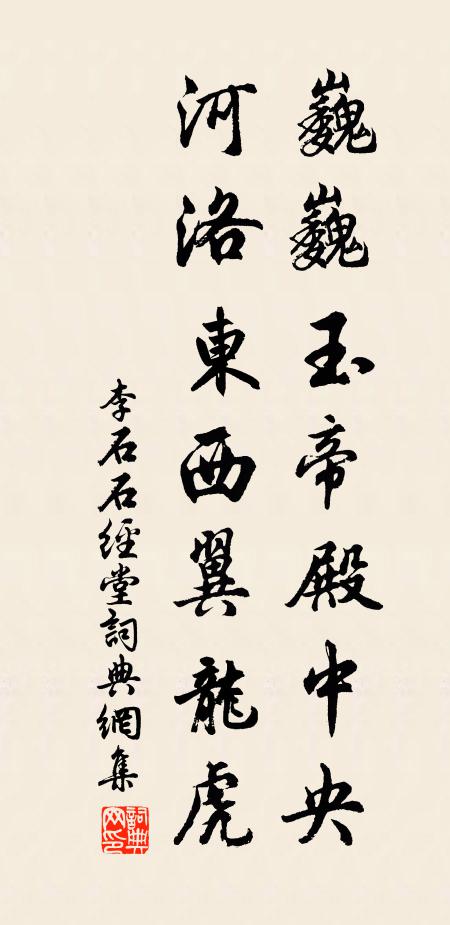 巍巍玉帝殿中央
河洛東西翼龍虎
李石石經堂詞典網集
詞典網印